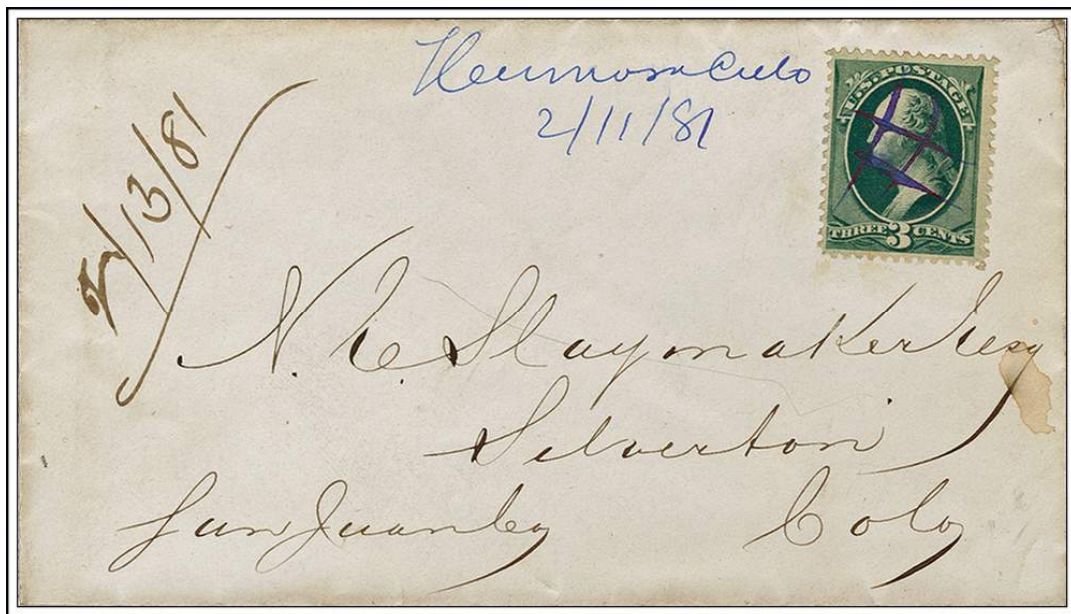 Hermosa Colo
2/11/81
U.S. POSTAGE
THREE 3 CENTS
2/13/81
N. C. Slaymaker Esq
Silverton
San Juan Co Colo